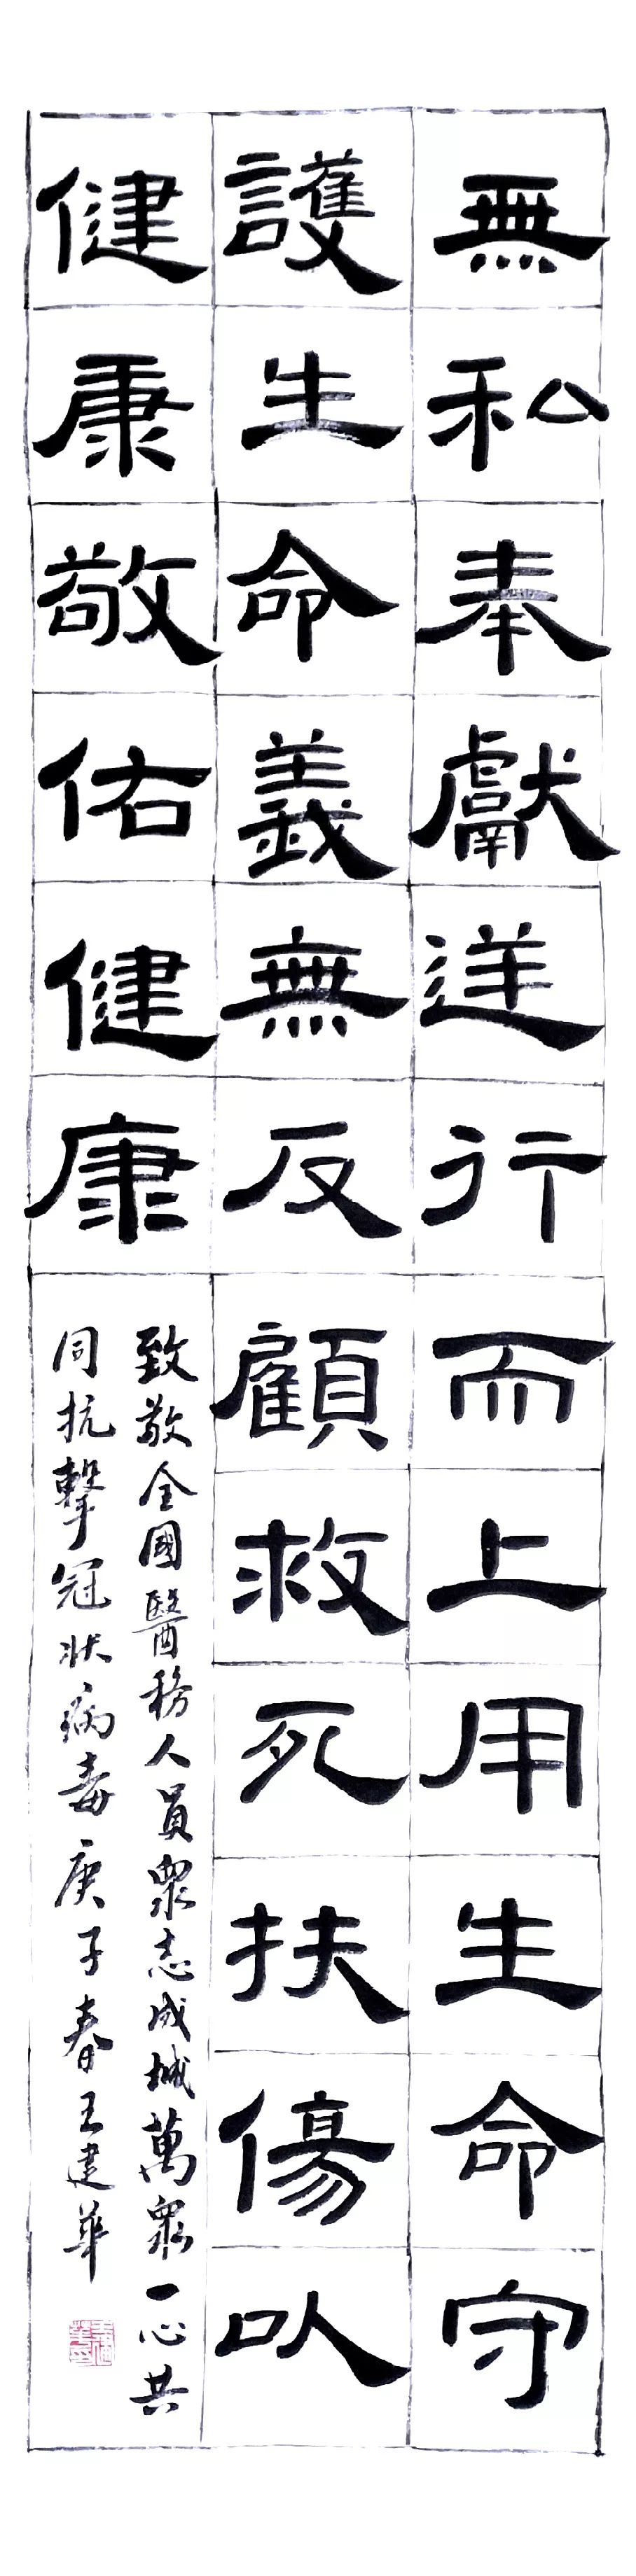 無私奉獻逆行而上用生命守
護生命義無反顧救死扶傷以
健康敬佑健康
致敬全國醫務人員衆志成城萬衆一心共
同抗擊冠狀病毒庚子春王建華